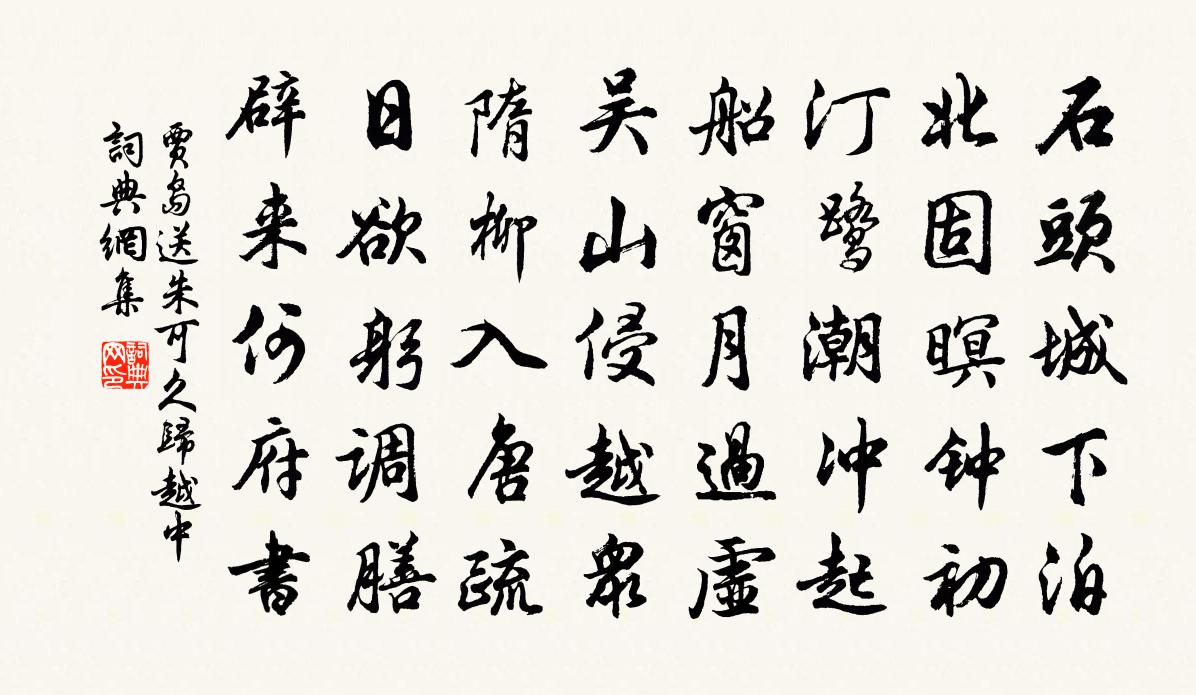 石頭城下泊
北固暝钟初
汀鹭潮冲起
船窗月過虛
吴山侵越衆
隋柳入唐疏
日欲躬调膳
辟来何府書
賈島送朱可久歸越中
詞典網集
詞典网印